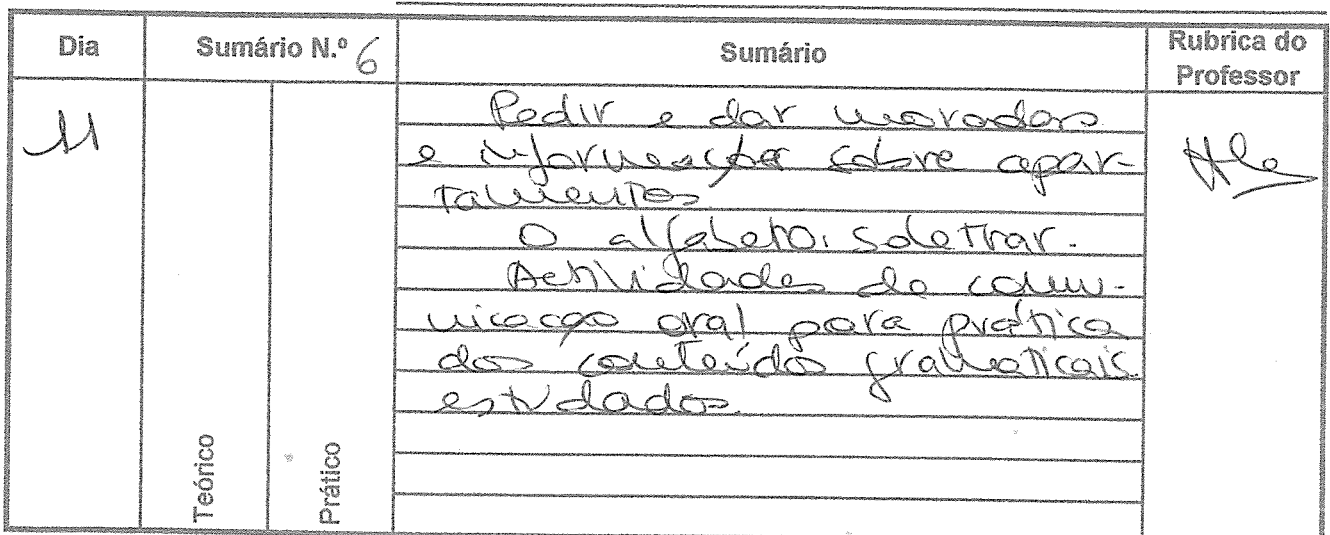 Dia Sumário N.º 6 Sumário Rubrica do Professor
11
Pedir e dar moradas
e informações sobre apar-
tamentos
O alfabeto: soletrar.
Actividades de comu-
nicação oral para prática
dos conteúdos gramaticais
estudados.
Teórico
Prático